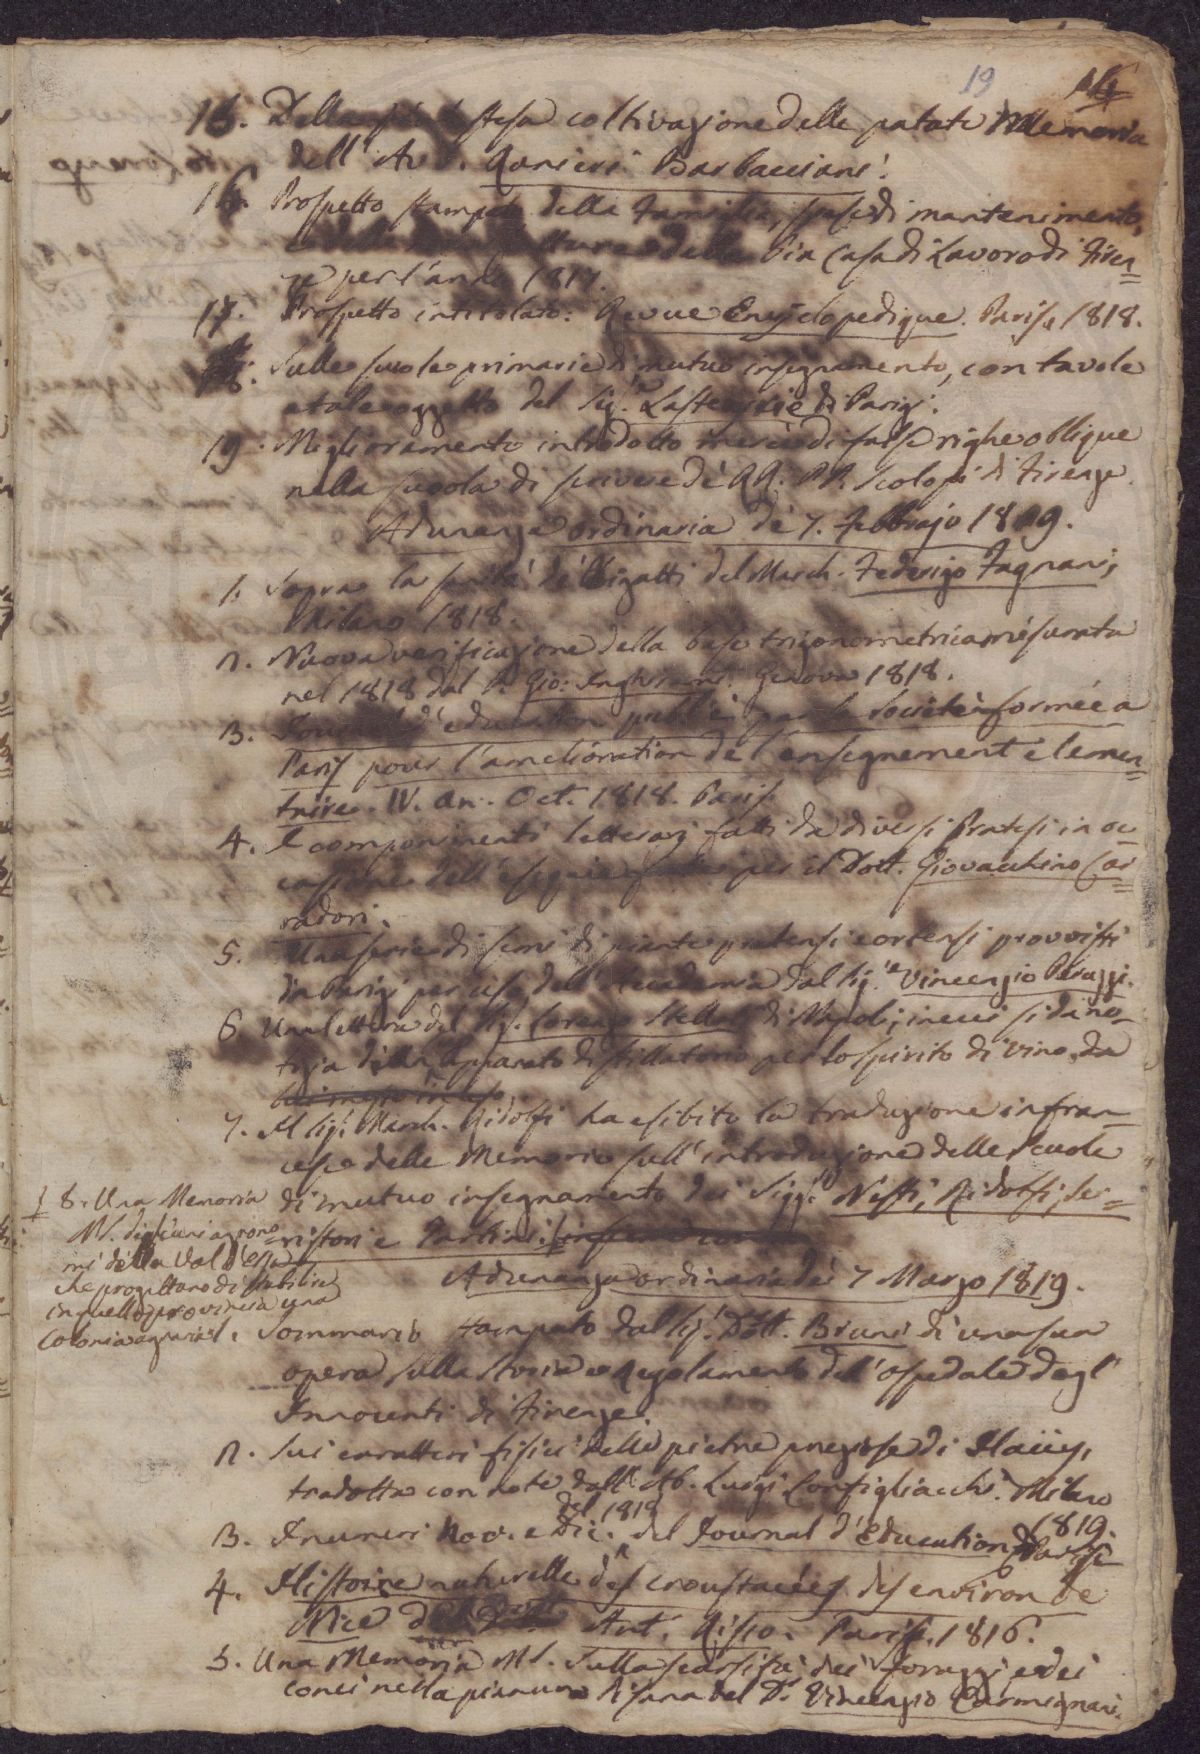 19
15. Della più estesa coltivazione delle patate Memoria
dell' Avv. Ranieri Barbacciani.
16. Prospetto stampato della Famiglia, spese di mantenimento,
e della Pia Casa di Lavoro di Firen=
ze per l'anno 1817.
17. Prospetto intitolato: Revue Enciclopedique. Paris, 1818.
18. Sulle scuole primarie di mutuo insegnamento, con tavole
a tale oggetto del Sig.re Lasteyrie di Parigi.
19. Miglioramento introdotto mercè di false righe oblique
nella scuola di scrivere de' RR. PP. Scolopi di Firenze.
Adunanza ordinaria de' 7. Febbrajo 1819.
1. Sopra la de' Bigatti del March. Federigo Fagnani,
Milano 1818.
2. Nuova verificazione della base trigonometrica misurata
nel 1818 dal P. Gio: Inghirami. Genova 1818.
3. Journal d'education publié par la Societé formée a
Paris pour l'amelioration de l'enseignement élemen=
taire. IV. An. Oct. 1818. Paris.
4. I componimenti letterarj fatti da diversi Pratesi in oc=
casione dell'esequie fatte per il Dott. Giovacchino Car=
radori.
5. Una serie di semi di piante pratensi e ortensi provvisti
in Parigi per uso dell'Accademia dal Sig.re Vincenzio Peruzzi.
6 Una lettera del Sig. Lorenzo Stellati di Napoli, in cui si dà no=
tizia dell' Apparato distillatorio per lo spirito di vino, da
lui
7. Il Sig. March. Ridolfi ha esibito la traduzione in fran=
cese delle Memorie sull'introduzione delle Scuole
di mutuo insegnamento dei Sigg.ri Nesti, Ridolfi, Ser=
ristori e Tartini.
8. Una Memoria
MS. di alcuni agrono=
mi della Val d'Elsa
che progettano di stabilire
in quella provincia una
Colonia agraria.
Adunanza ordinaria de' 7 Marzo 1819.
1. Sommario stampato dal Sig. Dott. Bruni di una sua
opera sulla storia e Regolamento dell'Ospedale degl'
Innocenti di Firenze.
2. Sui caratteri fisici delle pietre preziose di Haüy,
tradotta con note dall'Ab. Luigi Configliacchi. Milano
1819.
3. I numeri Nov. e Dic. del 1818 del Journal d'Education. Paris
4. Histoire naturelle des croustacées des environ de
Nice Ant. Risso. Paris. 1816.
5. Una Memoria MS. sulla scarsità dei foraggi e dei
conci nella pianura Pisana del D.r Vincenzio Carmignani.